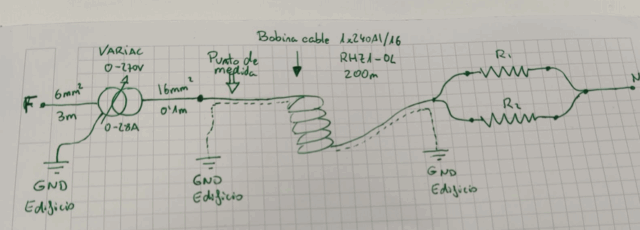 Bobina cable 1x240Al/16
RHZ1-OL
200m
VARIAC
0-270V
Punto de
medida
R1
R2
F
6mm²
3m
16mm²
0'1m
0-28A
N
GND
Edificio
GND
Edificio
GND
Edificio